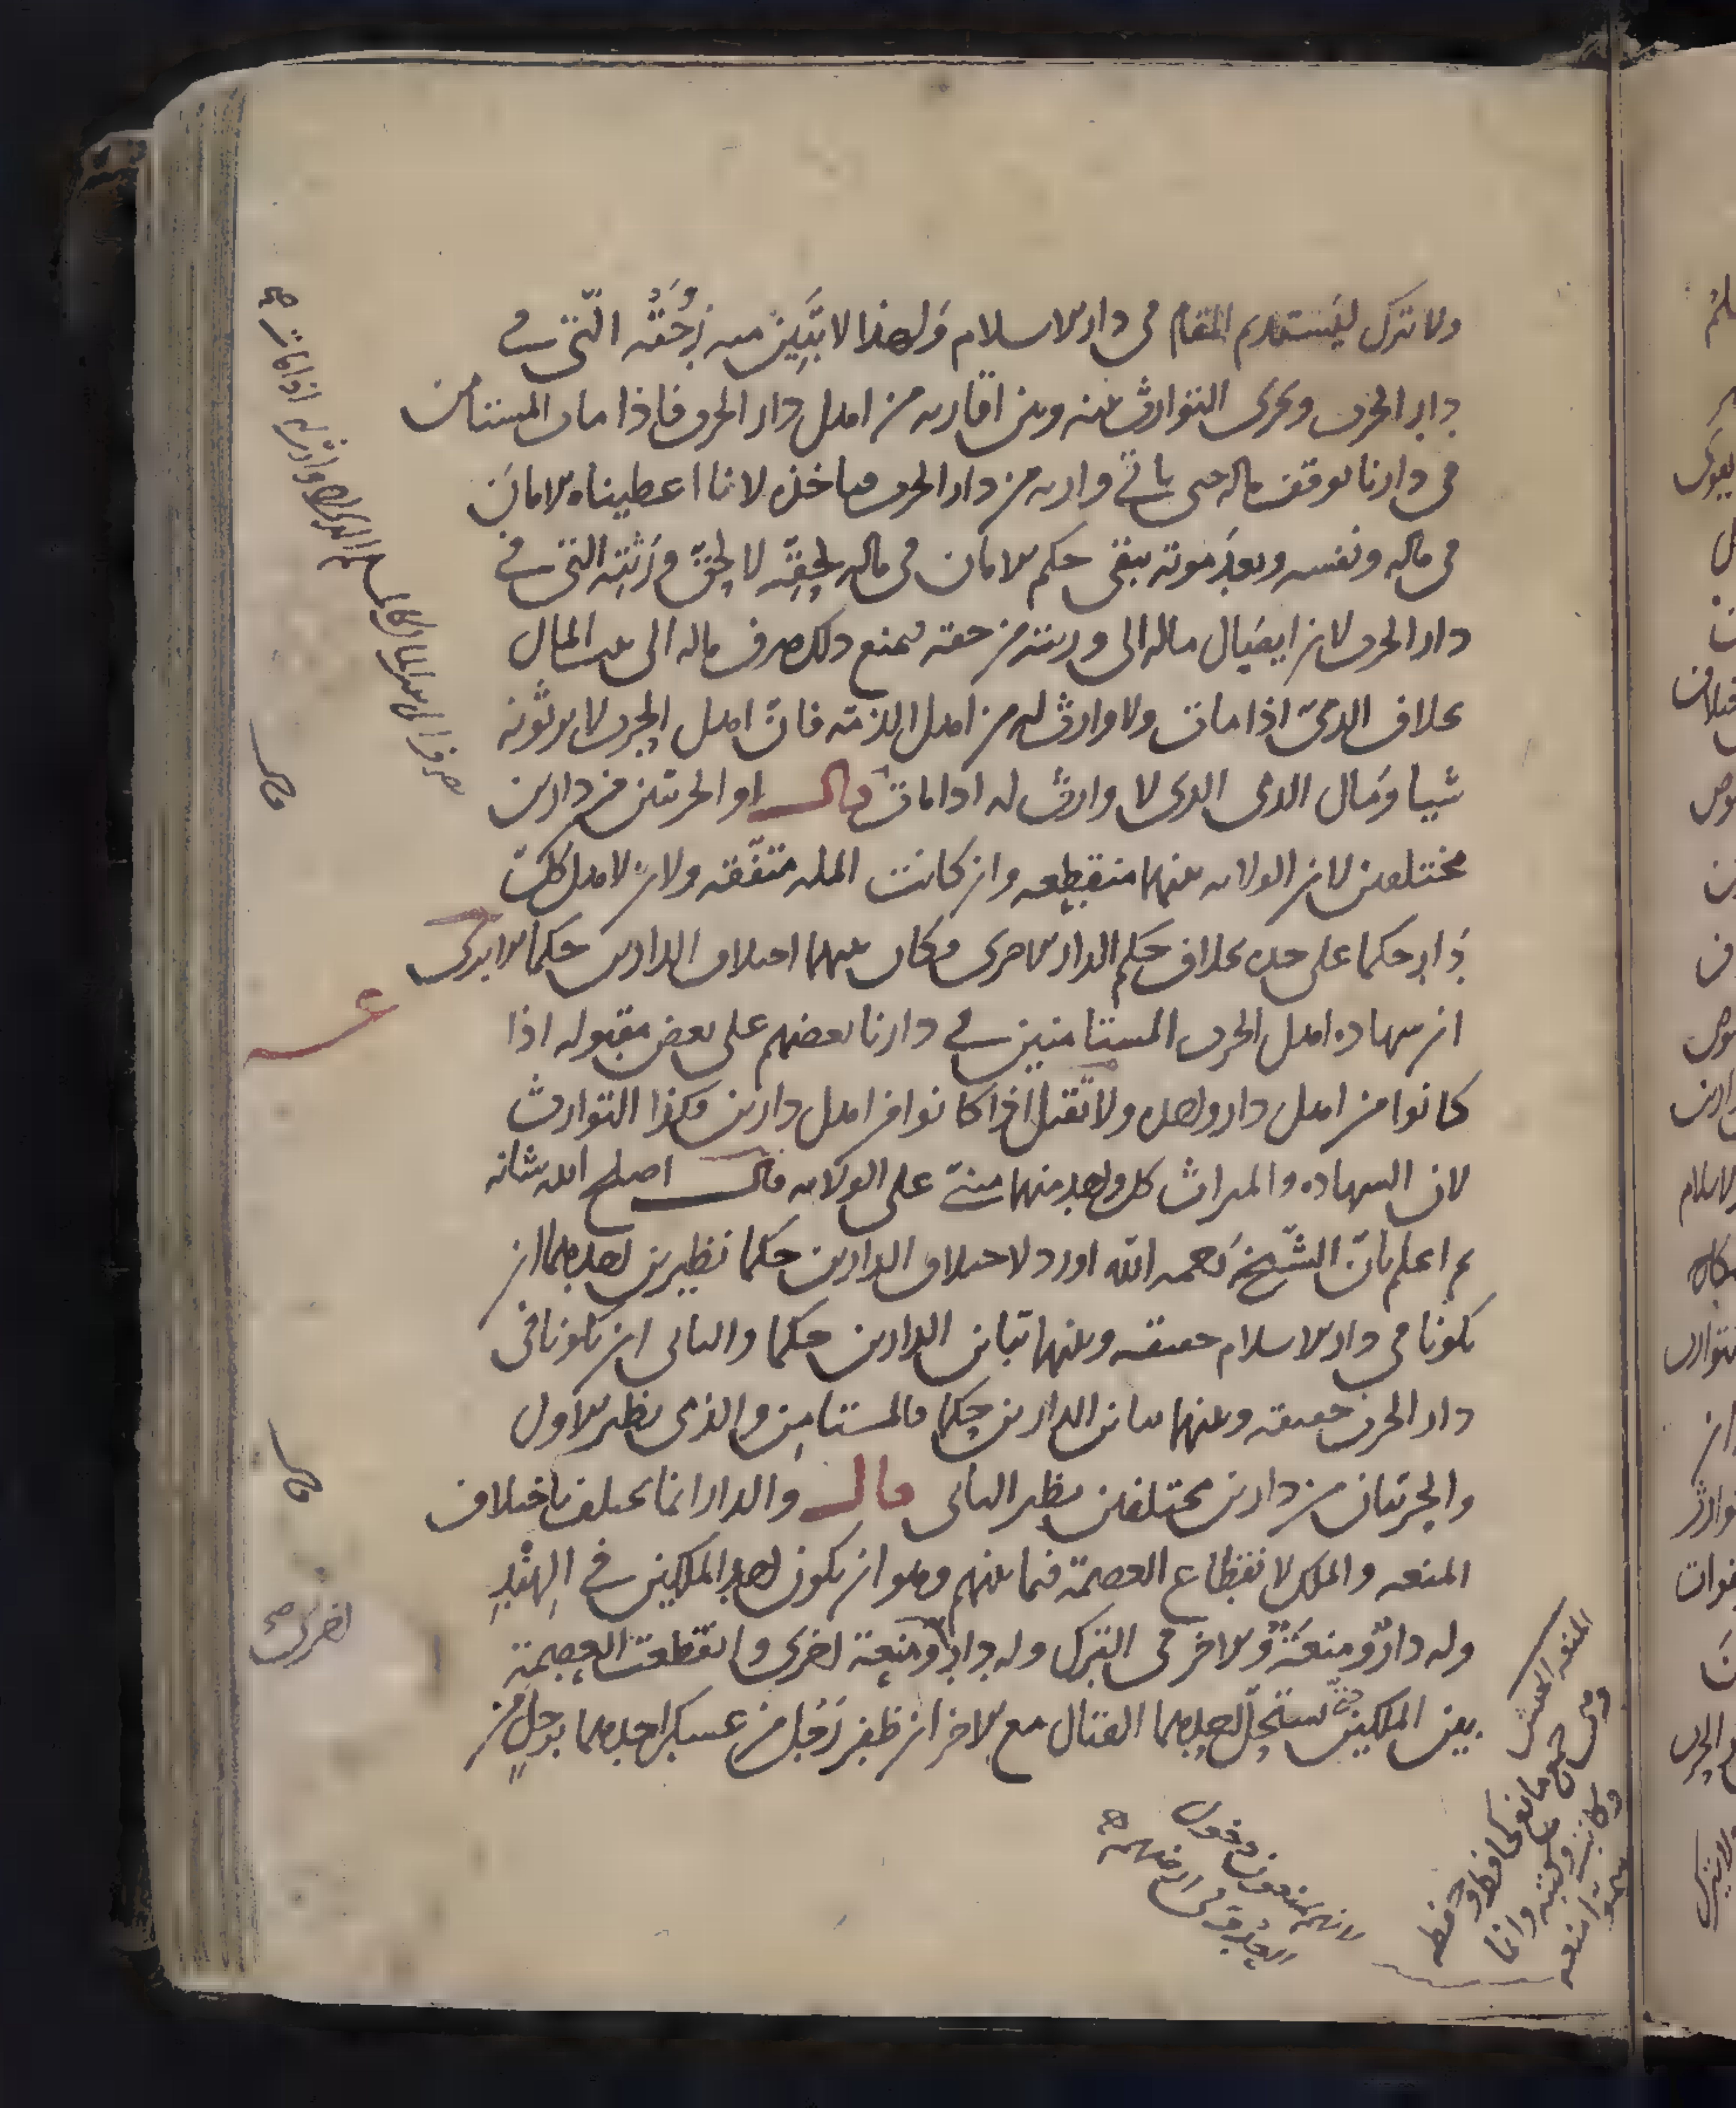 ولا يترك ليستديم المقام في دار الاسلام ولهذا لا تبين منه زوجته التي في
دار الحرب ويجرى التوارث بينه وبين اقاربه من اهل دار الحرب فاذا مات المستامن
في دارنا يوقف ماله حتى ياتي وارثه من دار الحرب فياخذه لانا اعطيناه الامان
في ماله ونفسه وبعد موته يبقى حكم الامان في ماله لحقه لا لحق ورثته التي في
دار الحرب لان ايصال ماله الى ورثته من حقه فيمنع ذلك صرف ماله الى بيت المال
بخلاف الذمي اذا مات ولا وارث له من اهل الذمة فان اهل الحرب لا يرثونه
شيا ومال الذمي الذي لا وارث له اذا مات قال او الحربيين من دارين
مختلفين لان الولاية بينهما منقطعه وان كانت الملة متفقه ولان لاهل كل
دار حكما على حده بخلاف حكم الدار الاخرى فكان بينهما اختلاف الدارين حكما الا يرى
ان شهادة اهل الحرب المستامنين في دارنا بعضهم على بعض مقبوله اذا
كانوا من اهل دار واحده ولا تقبل اذا كانوا من اهل دارين فكذا التوارث
لان الشهاده والميراث كل واحد منهما مبني على الولايه قال اصلح الله شانه
ثم اعلم بان الشيخ رحمه الله اورد لاختلاف الدارين حكما نظيرين احدهما ان
يكونا في دار الاسلام حقيقه وبينهما تباين الدارين حكما والثاني ان يكونا في
دار الحرب حقيقه وبينهما تباين الدارين حكما فالمستامن والذمي نظير الاول
والحربيان من دارين مختلفين نظير الثاني قال والدار انما تختلف باختلاف
المنعه والملك لانقطاع العصمة فيما بينهم وهو ان يكون احد الملكين في الهند
وله دار ومنعة والاخر في الترك وله دار ومنعة اخرى وانقطعت العصمة
بين الملكين يستحل احدهما القتال مع الاخر ان ظفر رجل من عسكر احدهما برجل من
صرف الى بيت المال
وارثه اذا مات صح
قال
قال
اخرى صح
لانهم يمنعون دخول
العدو في ارضهم
المنعه الجيش